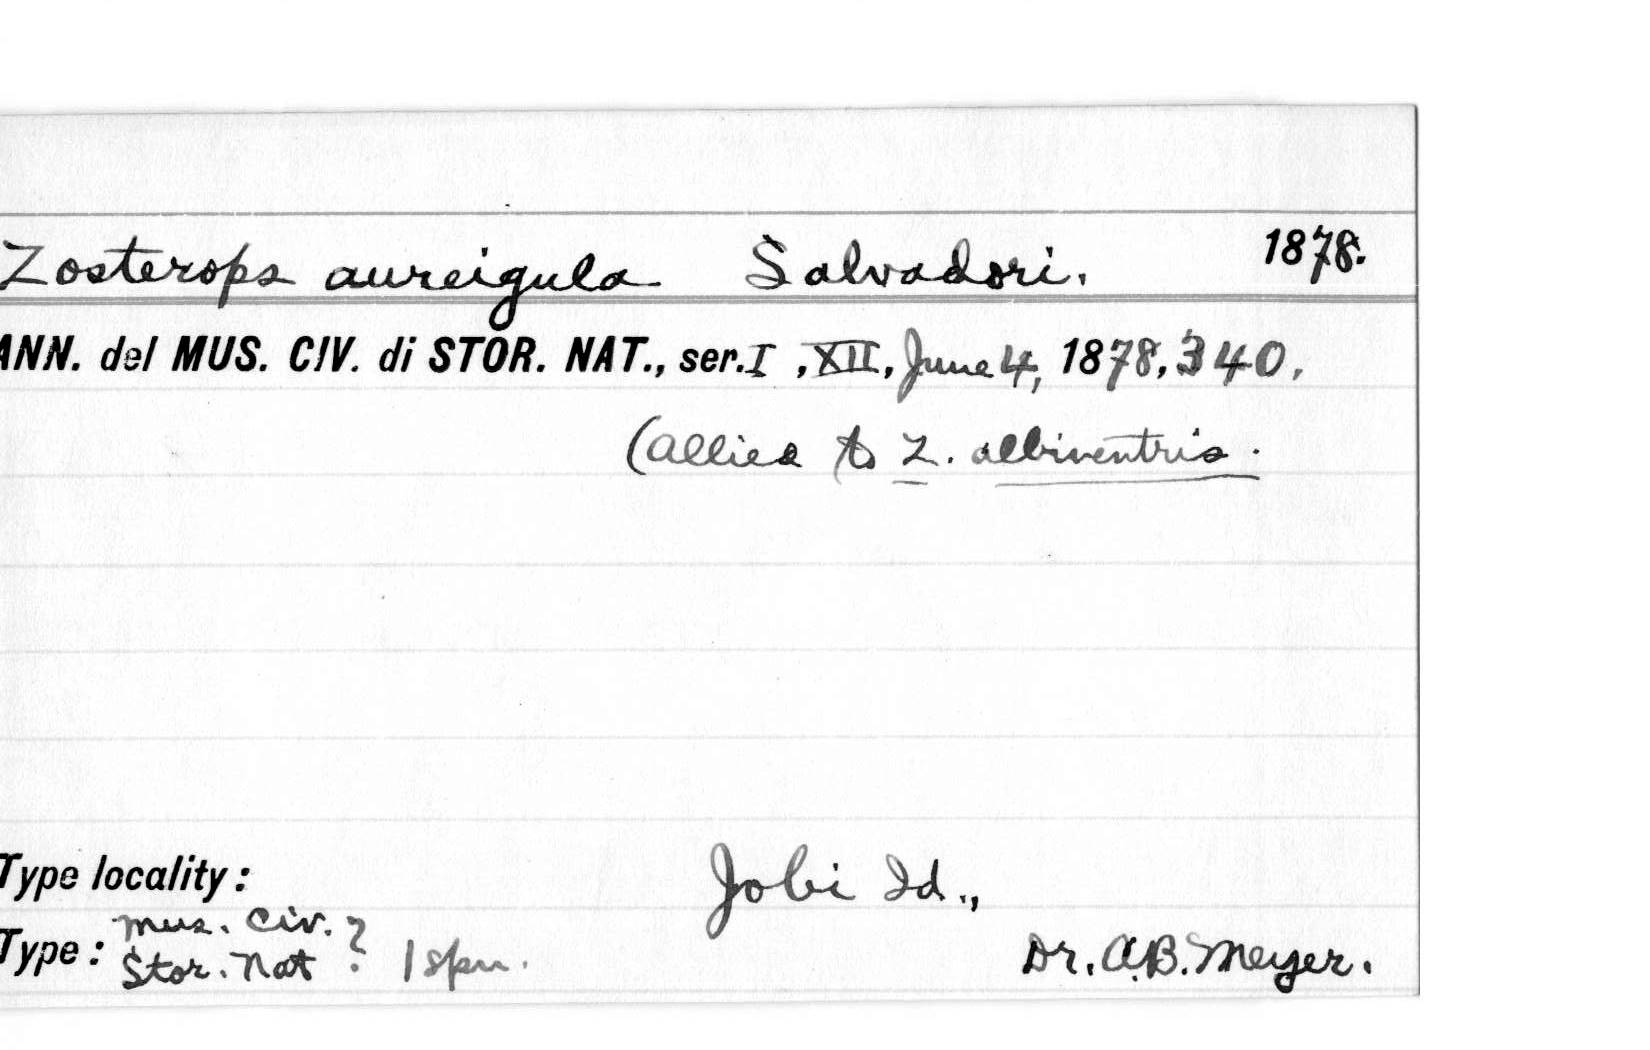 Zosterops aureigula Salvadori. 1878.
ANN. del MUS. CIV. di STOR. NAT., ser. I, XII, June 4, 1878, 340.
(allied to Z. albiventris.
Type locality: Jobi Id.,
Type: Mus. Civ. Stor. Nat? 1 spm. Dr. A.B. Meyer.